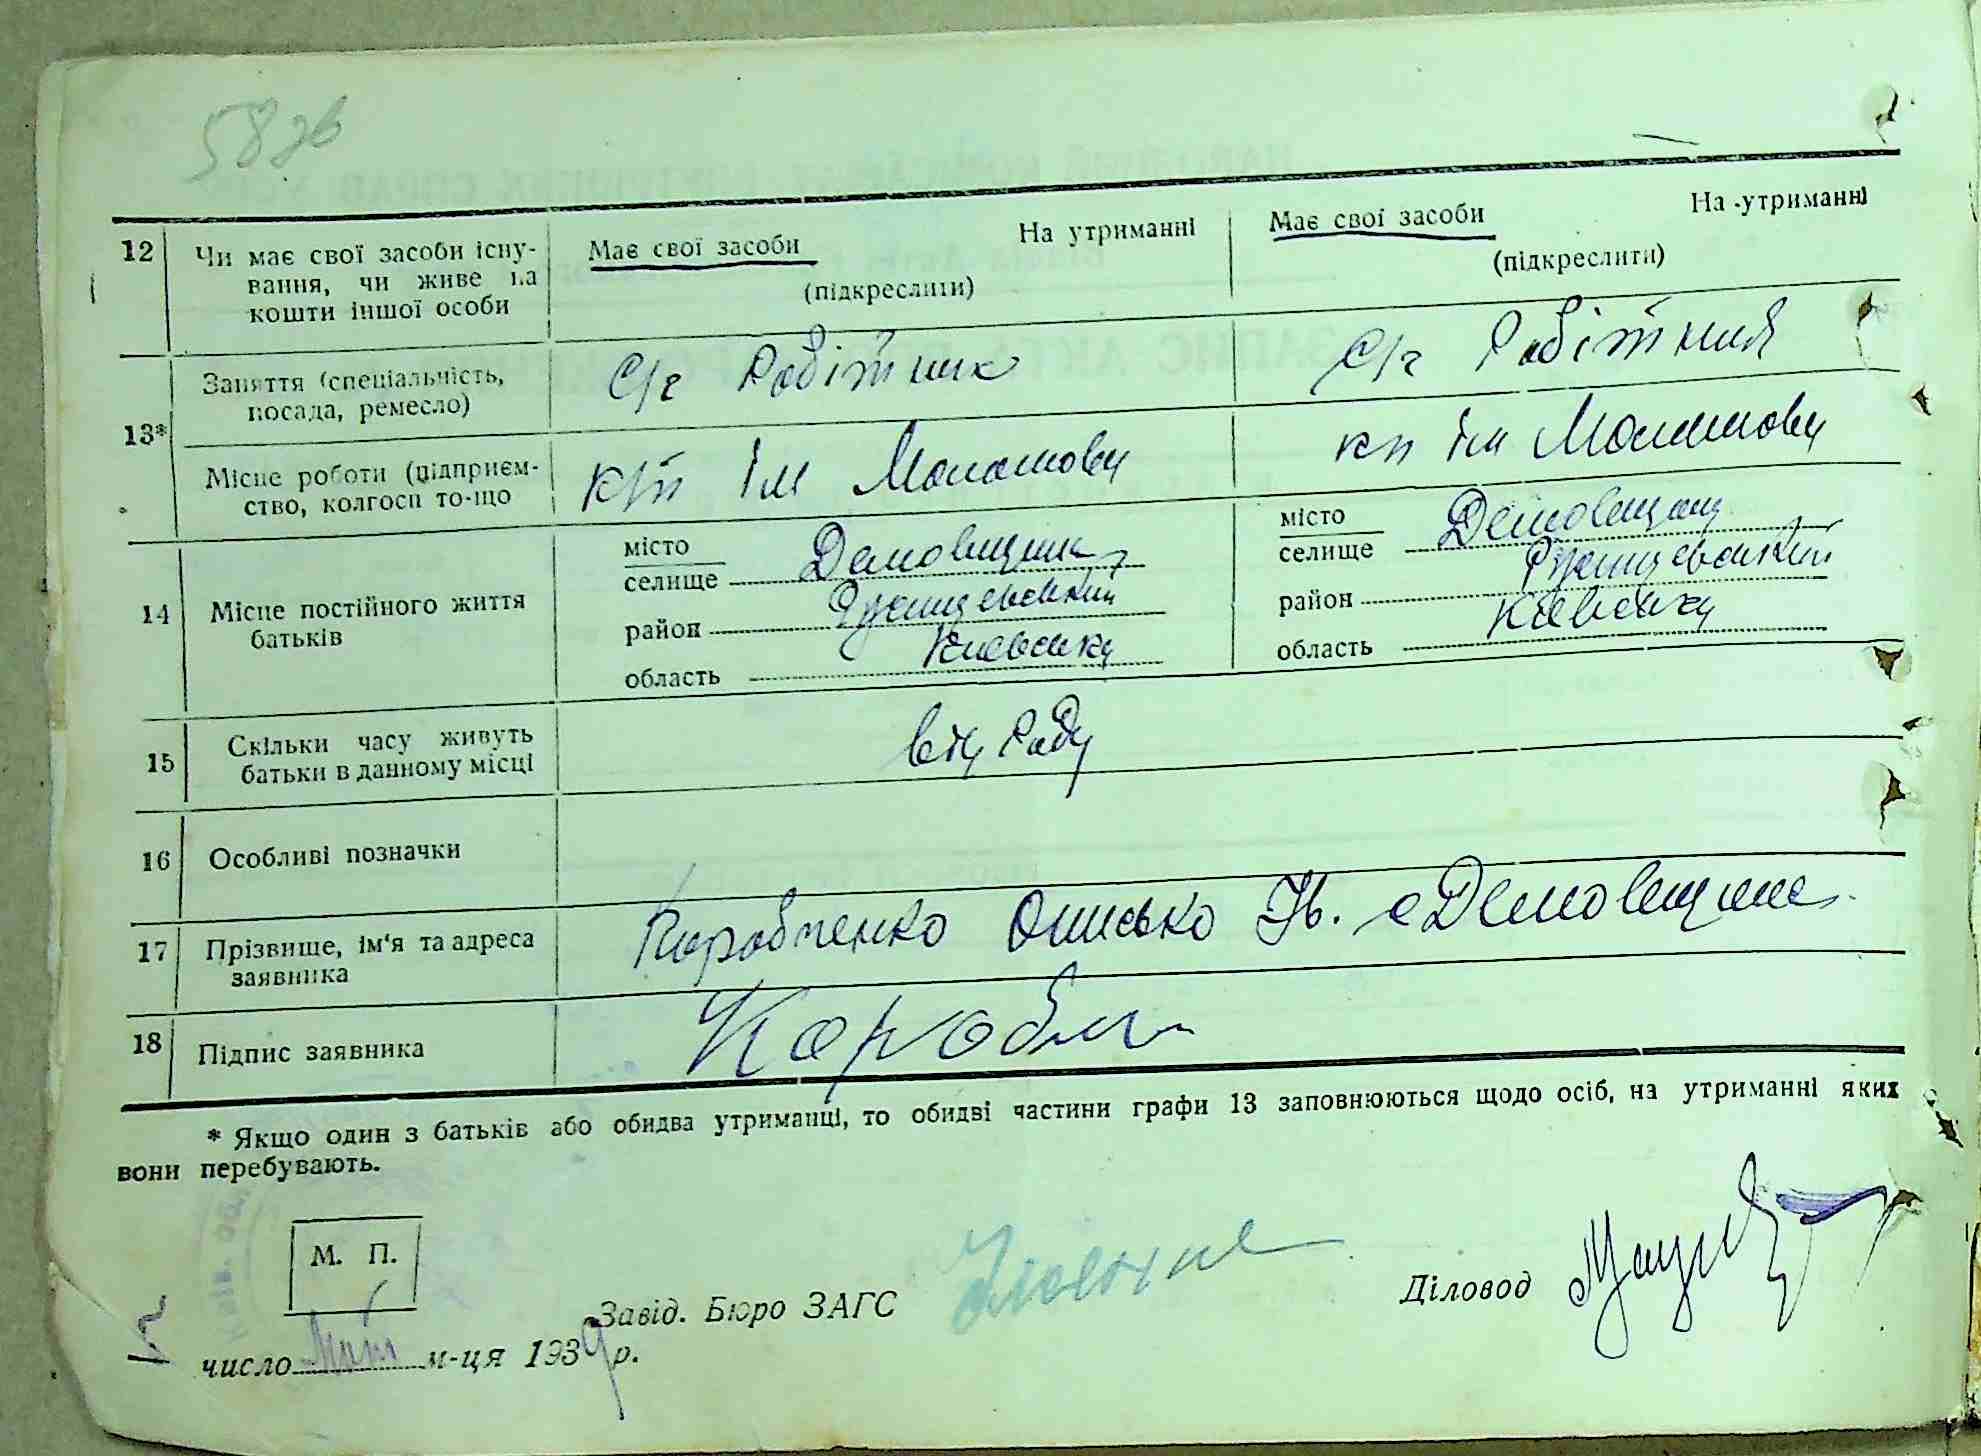 58 зв
12 Чи має свої засоби існу-
вання, чи живе на
кошти іншої особи
Має свої засоби На утриманні
(підкреслити)
Має свої засоби На утриманні
(підкреслити)
13* Заняття (спеціальність,
посада, ремесло)
С/г Робітник
С/г Робітниця
Місце роботи (підприєм-
ство, колгосп то-що
ім
ім
14 Місце постійного життя
батьків
місто
селище Демовщина
район
область Київська
місто
селище Демовщина
район
область Київська
15 Скільки часу живуть
батьки в данному місці
16 Особливі позначки
17 Прізвище, ім'я та адреса
заявника
Онисько Ів. с Демовщина
18 Підпис заявника
* Якщо один з батьків або обидва утриманці, то обидві частини графи 13 заповнюються щодо осіб, на утриманні яких
вони перебувають.
М. П.
Завід. Бюро ЗАГС
Діловод
число м-ця 1939 р.